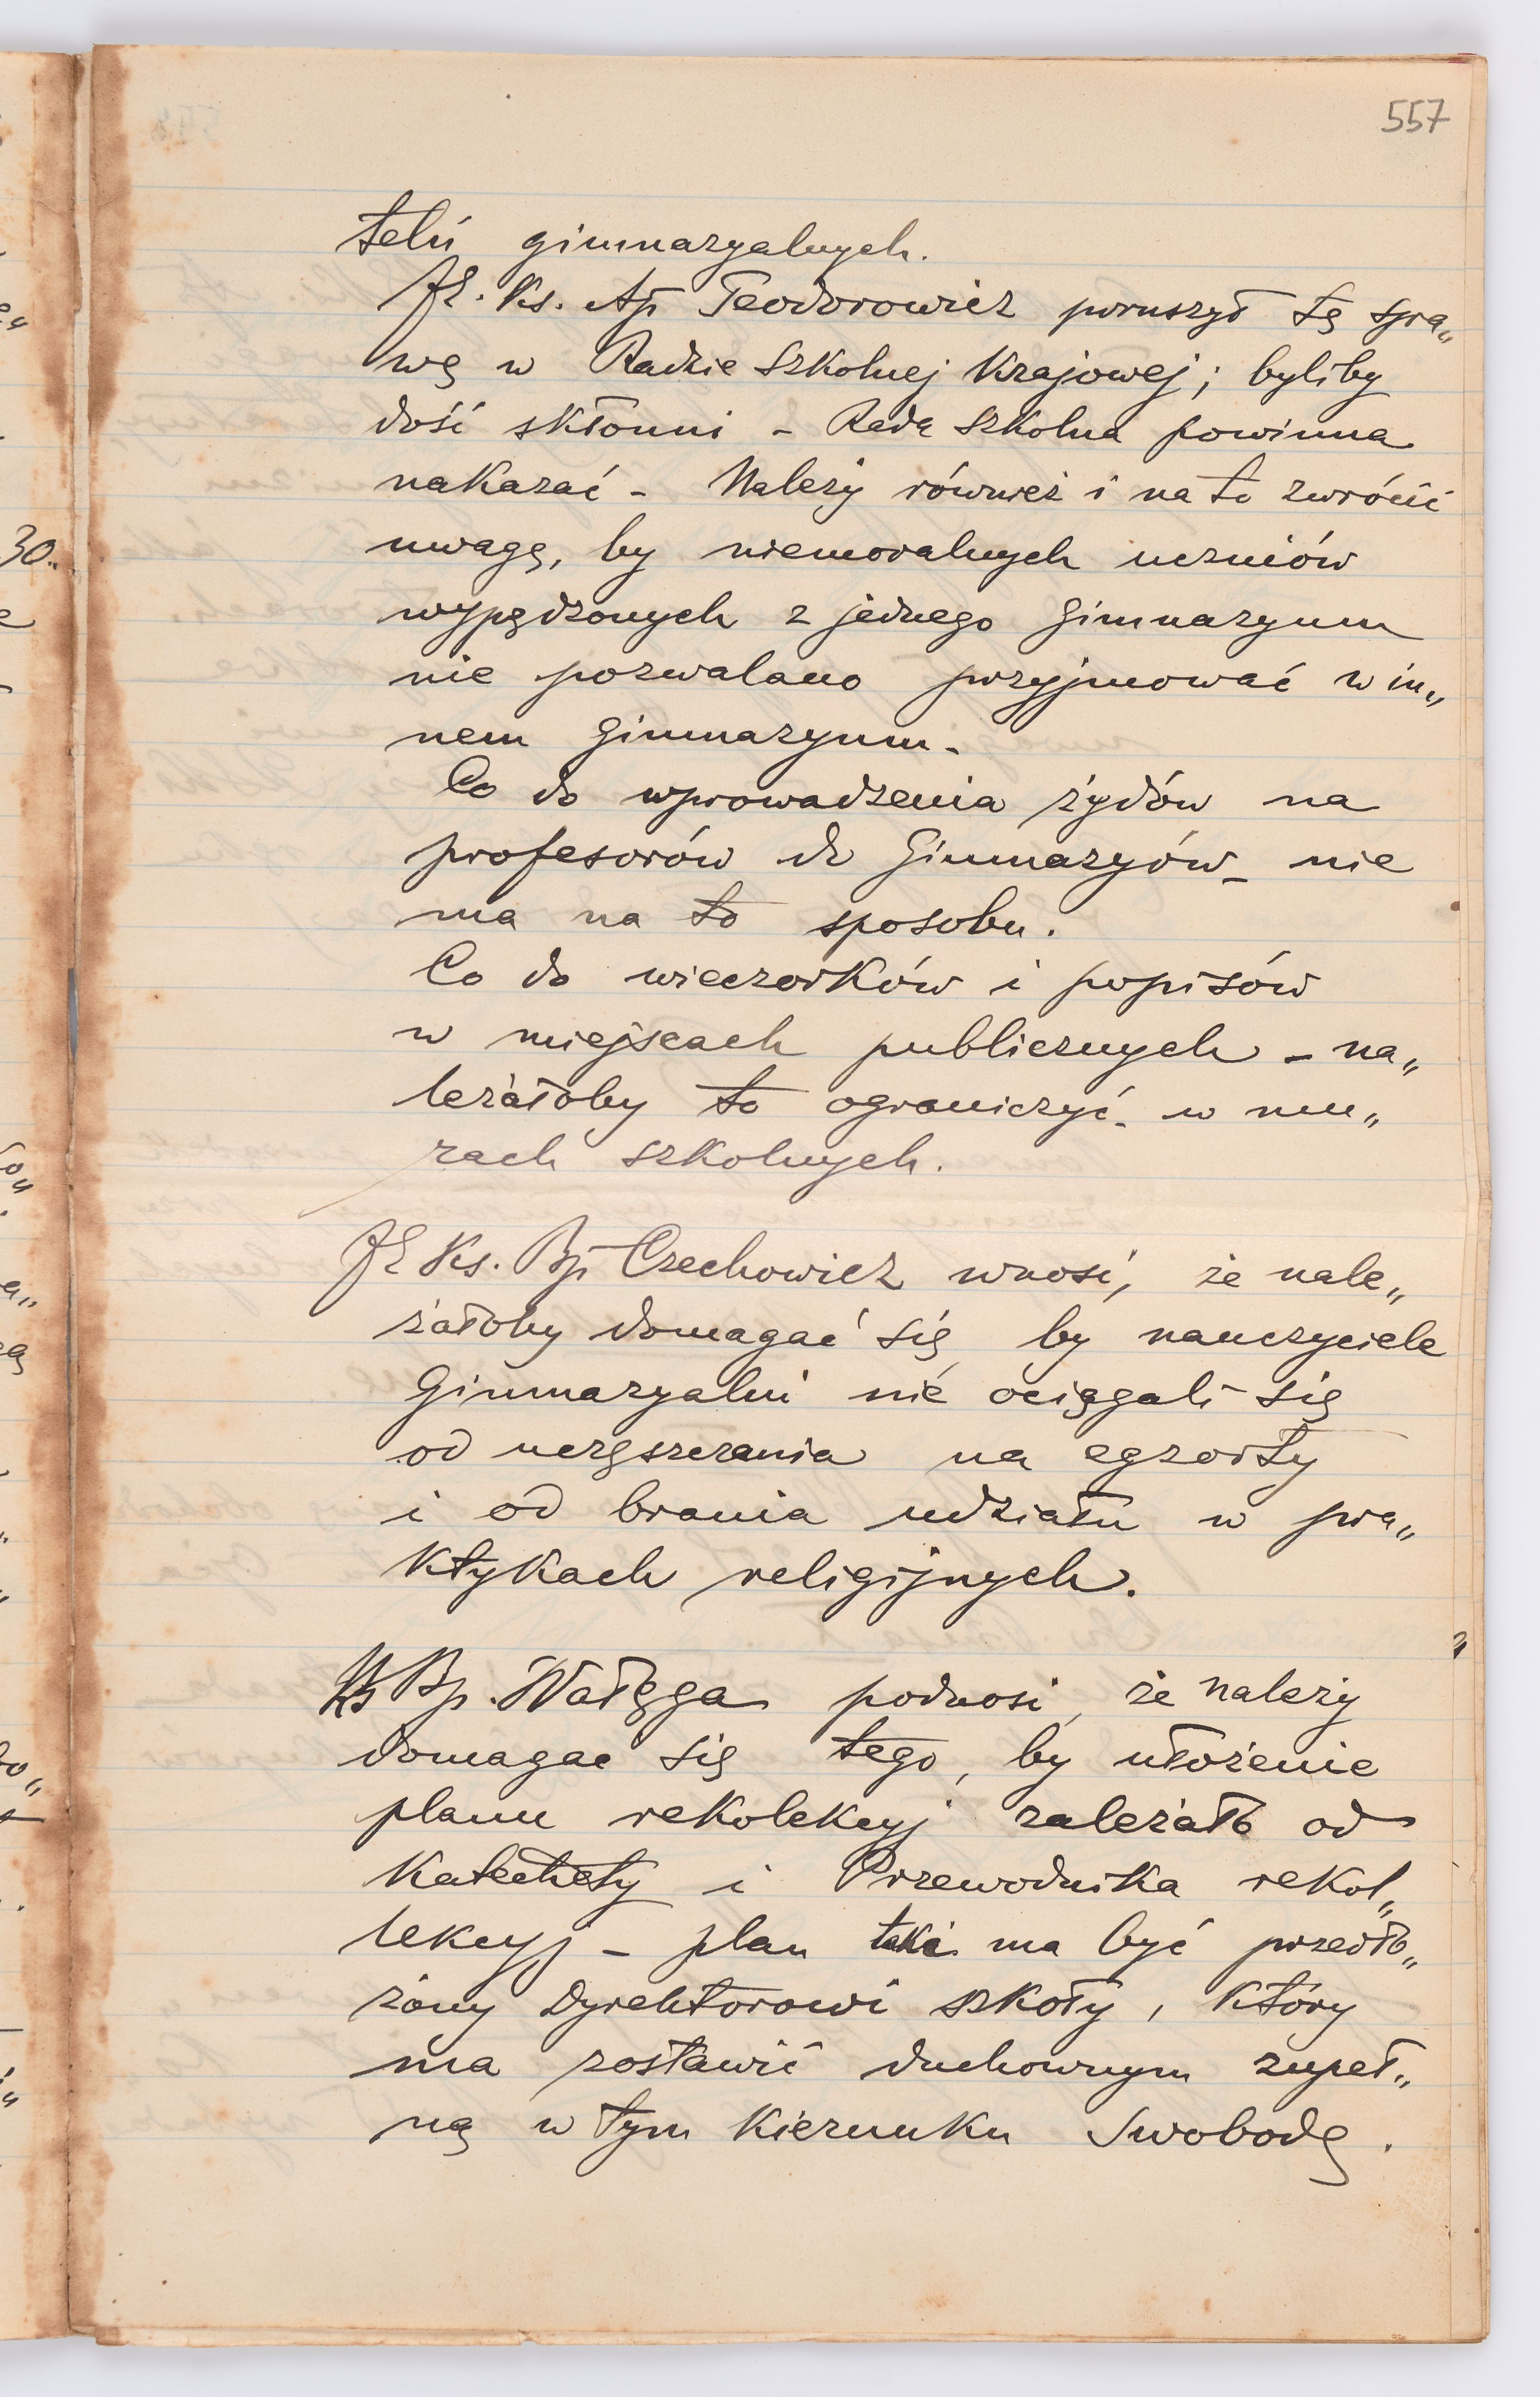 557
teli gimnazyalnych.
JE. Ks. Ap Teodorowicz poruszył tę spra„
wę w Radzie Szkolnej Krajowej; byliby
dość skłonni - Rada Szkolna powinna
nakazać - Należy również i na to zwrócić
uwagę, by niemoralnych uczniów
wypędzonych z jednego Gimnazyum
nie pozwalano przyjmować w in„
nem Gimnazyum.
Co do wprowadzenia żydów na
profesorów do Gimnazyów - nie
ma na to sposobu.
Co do wieczorków i popisów
w miejscach publicznych - na„
leżałoby to ograniczyć - w mu„
rach szkolnych.
JE Ks. Bp Czechowicz wnosi, że nale„
żałoby domagać się, by nauczyciele
Gimnazyalni nie ociągali się
od uczęszczania na egzorty
i od brania udziału w pra„
ktykach religijnych.
Ks Bp. Wałęga podnosi, że należy
domagac się tego, by ułożenie
planu rekolekcyj zależało od
Katechety i Przewodnika rekol„
lekcyj - plan taki ma być przedło„
żony Dyrektorowi szkoły, który
ma zostawić duchownym zupeł„
ną w tym kierunku Swobodę.